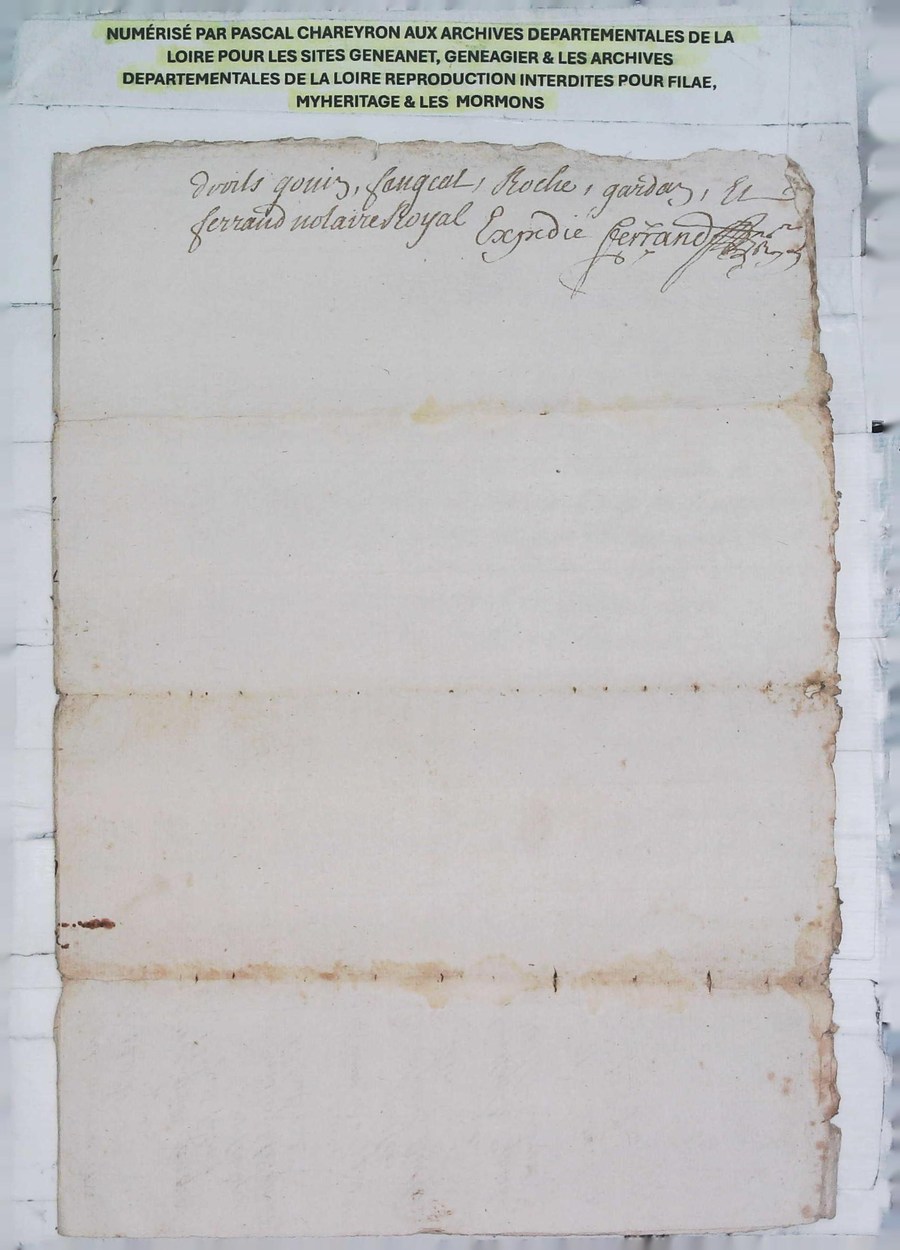 NUMÉRISÉ PAR PASCAL CHAREYRON AUX ARCHIVES DEPARTEMENTALES DE LA
LOIRE POUR LES SITES GENEANET, GENEAGIER & LES ARCHIVES
DEPARTEMENTALES DE LA LOIRE REPRODUCTION INTERDITES POUR FILAE,
MYHERITAGE & LES MORMONS
droits gouin, faugeat, Roche, gardon, Et
ferrand notaire Royal Expedie fferrand